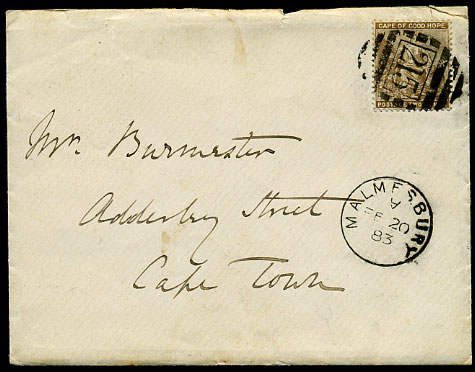 CAPE OF GOOD HOPE
215
POST
Mr. Burmester
Adderley Street
Cape Town
MALMESBURY
A
FE 20
83